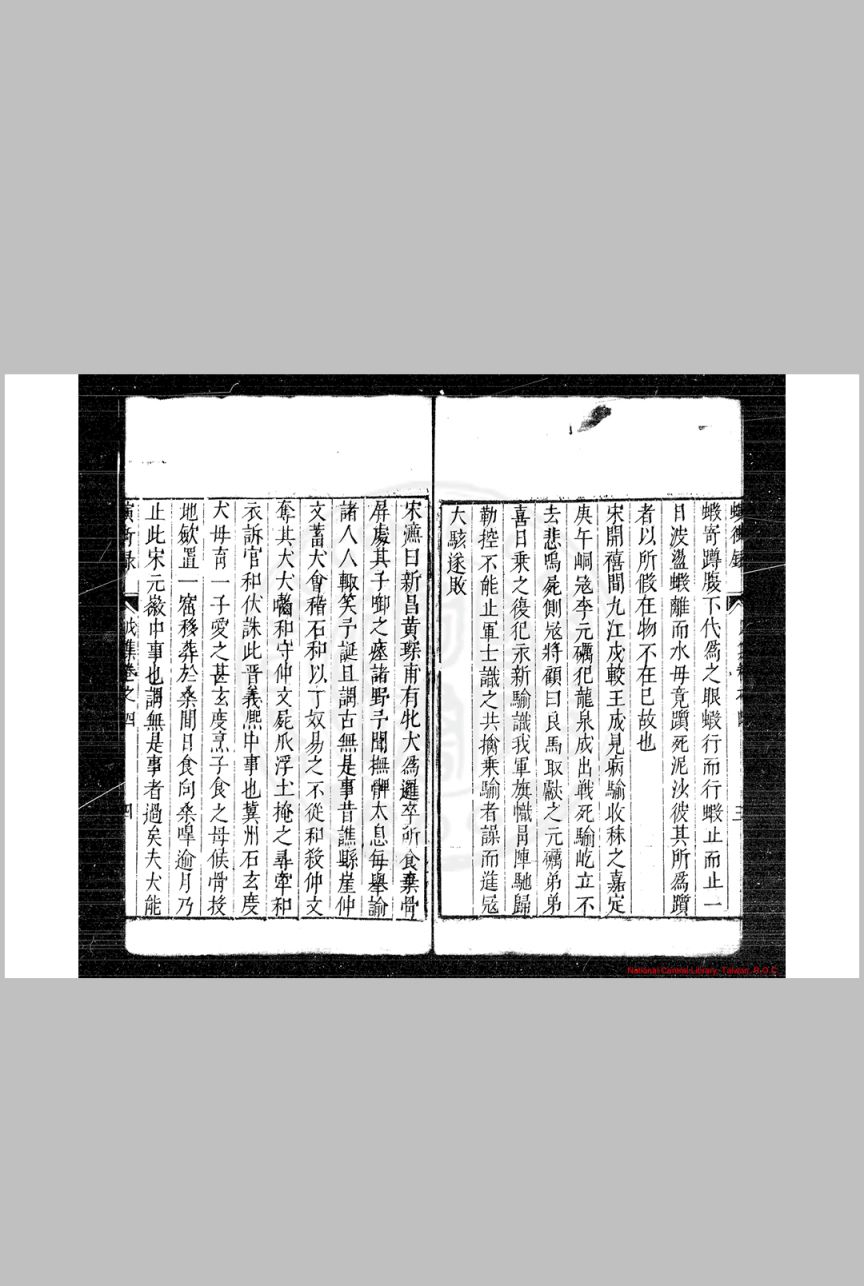 蝦寄蹲腹下代爲之眼蝦行而行蝦止而止一
日波盪蝦離而水毋竟躓死泥沙彼其所爲躓
者以所假在物不在已故也
宋開禧間九江戍較王成見病騧收秣之嘉定
庚午峒冦李元礪犯龍泉成出戰死騧屹立不
去悲鳴屍側冦將顧曰良馬取獻之元礪弟弟
喜日乗之後犯永新騧識我軍旗幟冐陣馳歸
勒控不能止軍士識之共擒乗騧者譟而進冦
大駭遂敗
宋濂曰新昌黄琛甫有牝犬爲邏卒所食棄骨
屏處其子啣之瘞諸野予聞撫髀太息每舉諭
諸人人輙笑予誕且謂古無是事昔譙縣崖仲
文蓄犬會稽石和以丁奴易之不從和殺仲文
奪其犬犬嚙和守仲文屍爪浮土掩之尋牽和
衣訴官和伏誅此晋義熈中事也冀州石玄度
犬毋育一子愛之甚玄度烹子食之母候骨投
地歛置一窖移葬於桑間日食向桑嘷逾月乃
止此宋元徽中事也謂無是事者過矣夫犬能
演奇录 卷之四 四
National Central Library, Taiwan, R.O.C